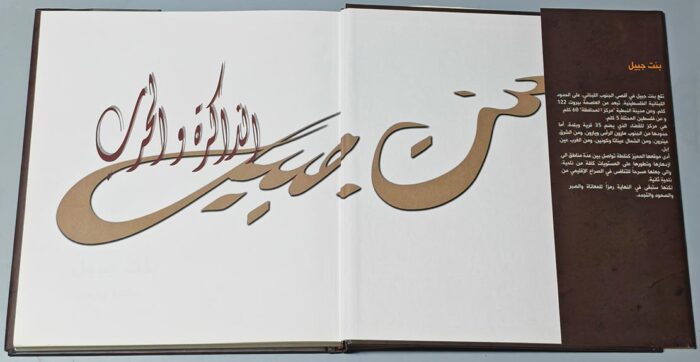 بنت جبيل
الذاكرة و الحرب
بنت جبيل
تقع بنت جبيل في أقصى الجنوب اللبناني، على الحدود
اللبنانية الفلسطينية. تبعد عن العاصمة بيروت 122
كلم، وعن مدينة النبطية "مركز المحافظة" 60 كلم
و عن فلسطين المحتلة 5 كلم.
هي مركز للقضاء الذي يضم 35 قرية وبلدة. أما
حدودها من الجنوب مارون الرأس ويارون، ومن الشرق
عيترون، ومن الشمال عيناتا وكونين، ومن الغرب عين
إبل.
أدى موقعها المميز كنقطة تواصل بين عدة مناطق الى
ازدهارها وتطورها على المستويات كافة من ناحية،
والى جعلها مسرحا للتنافس في الصراع الإقليمي من
ناحية ثانية.
لكنها ستبقى في النهاية رمزا للمعاناة والصبر
والصمود والتجدد.